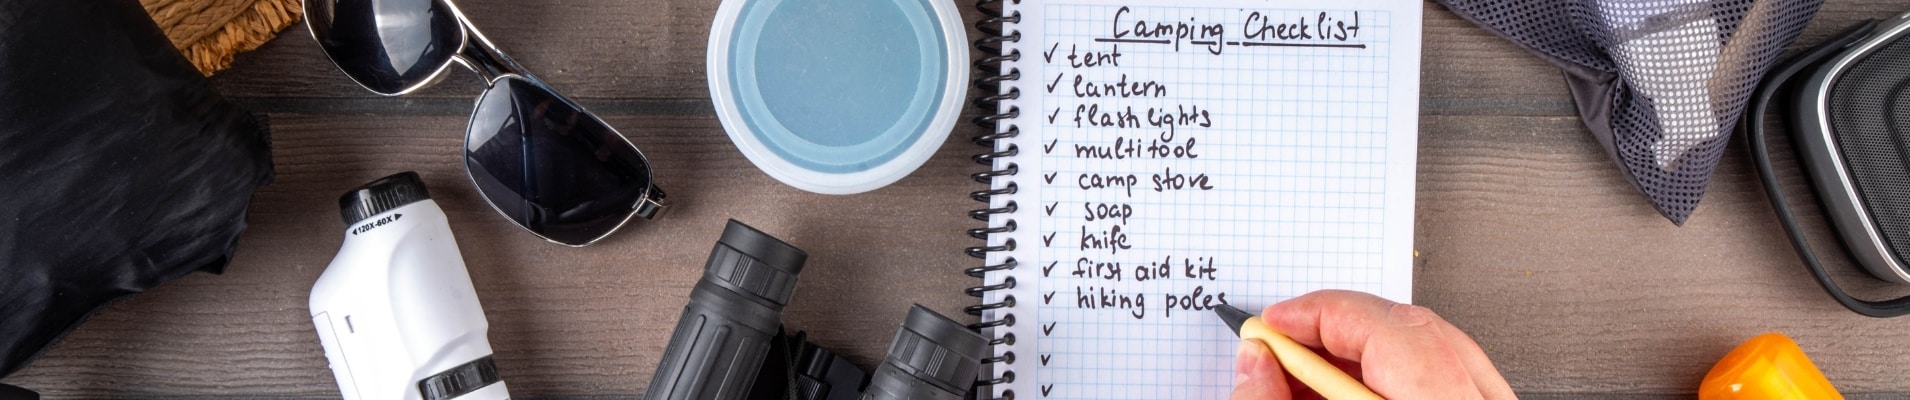 Camping Checklist
✓ tent
✓ lantern
✓ flashlights
✓ multitool
✓ camp stove
✓ soap
✓ knife
✓ first aid kit
✓ hiking poles
✓
✓
✓
◀120X-60X▶